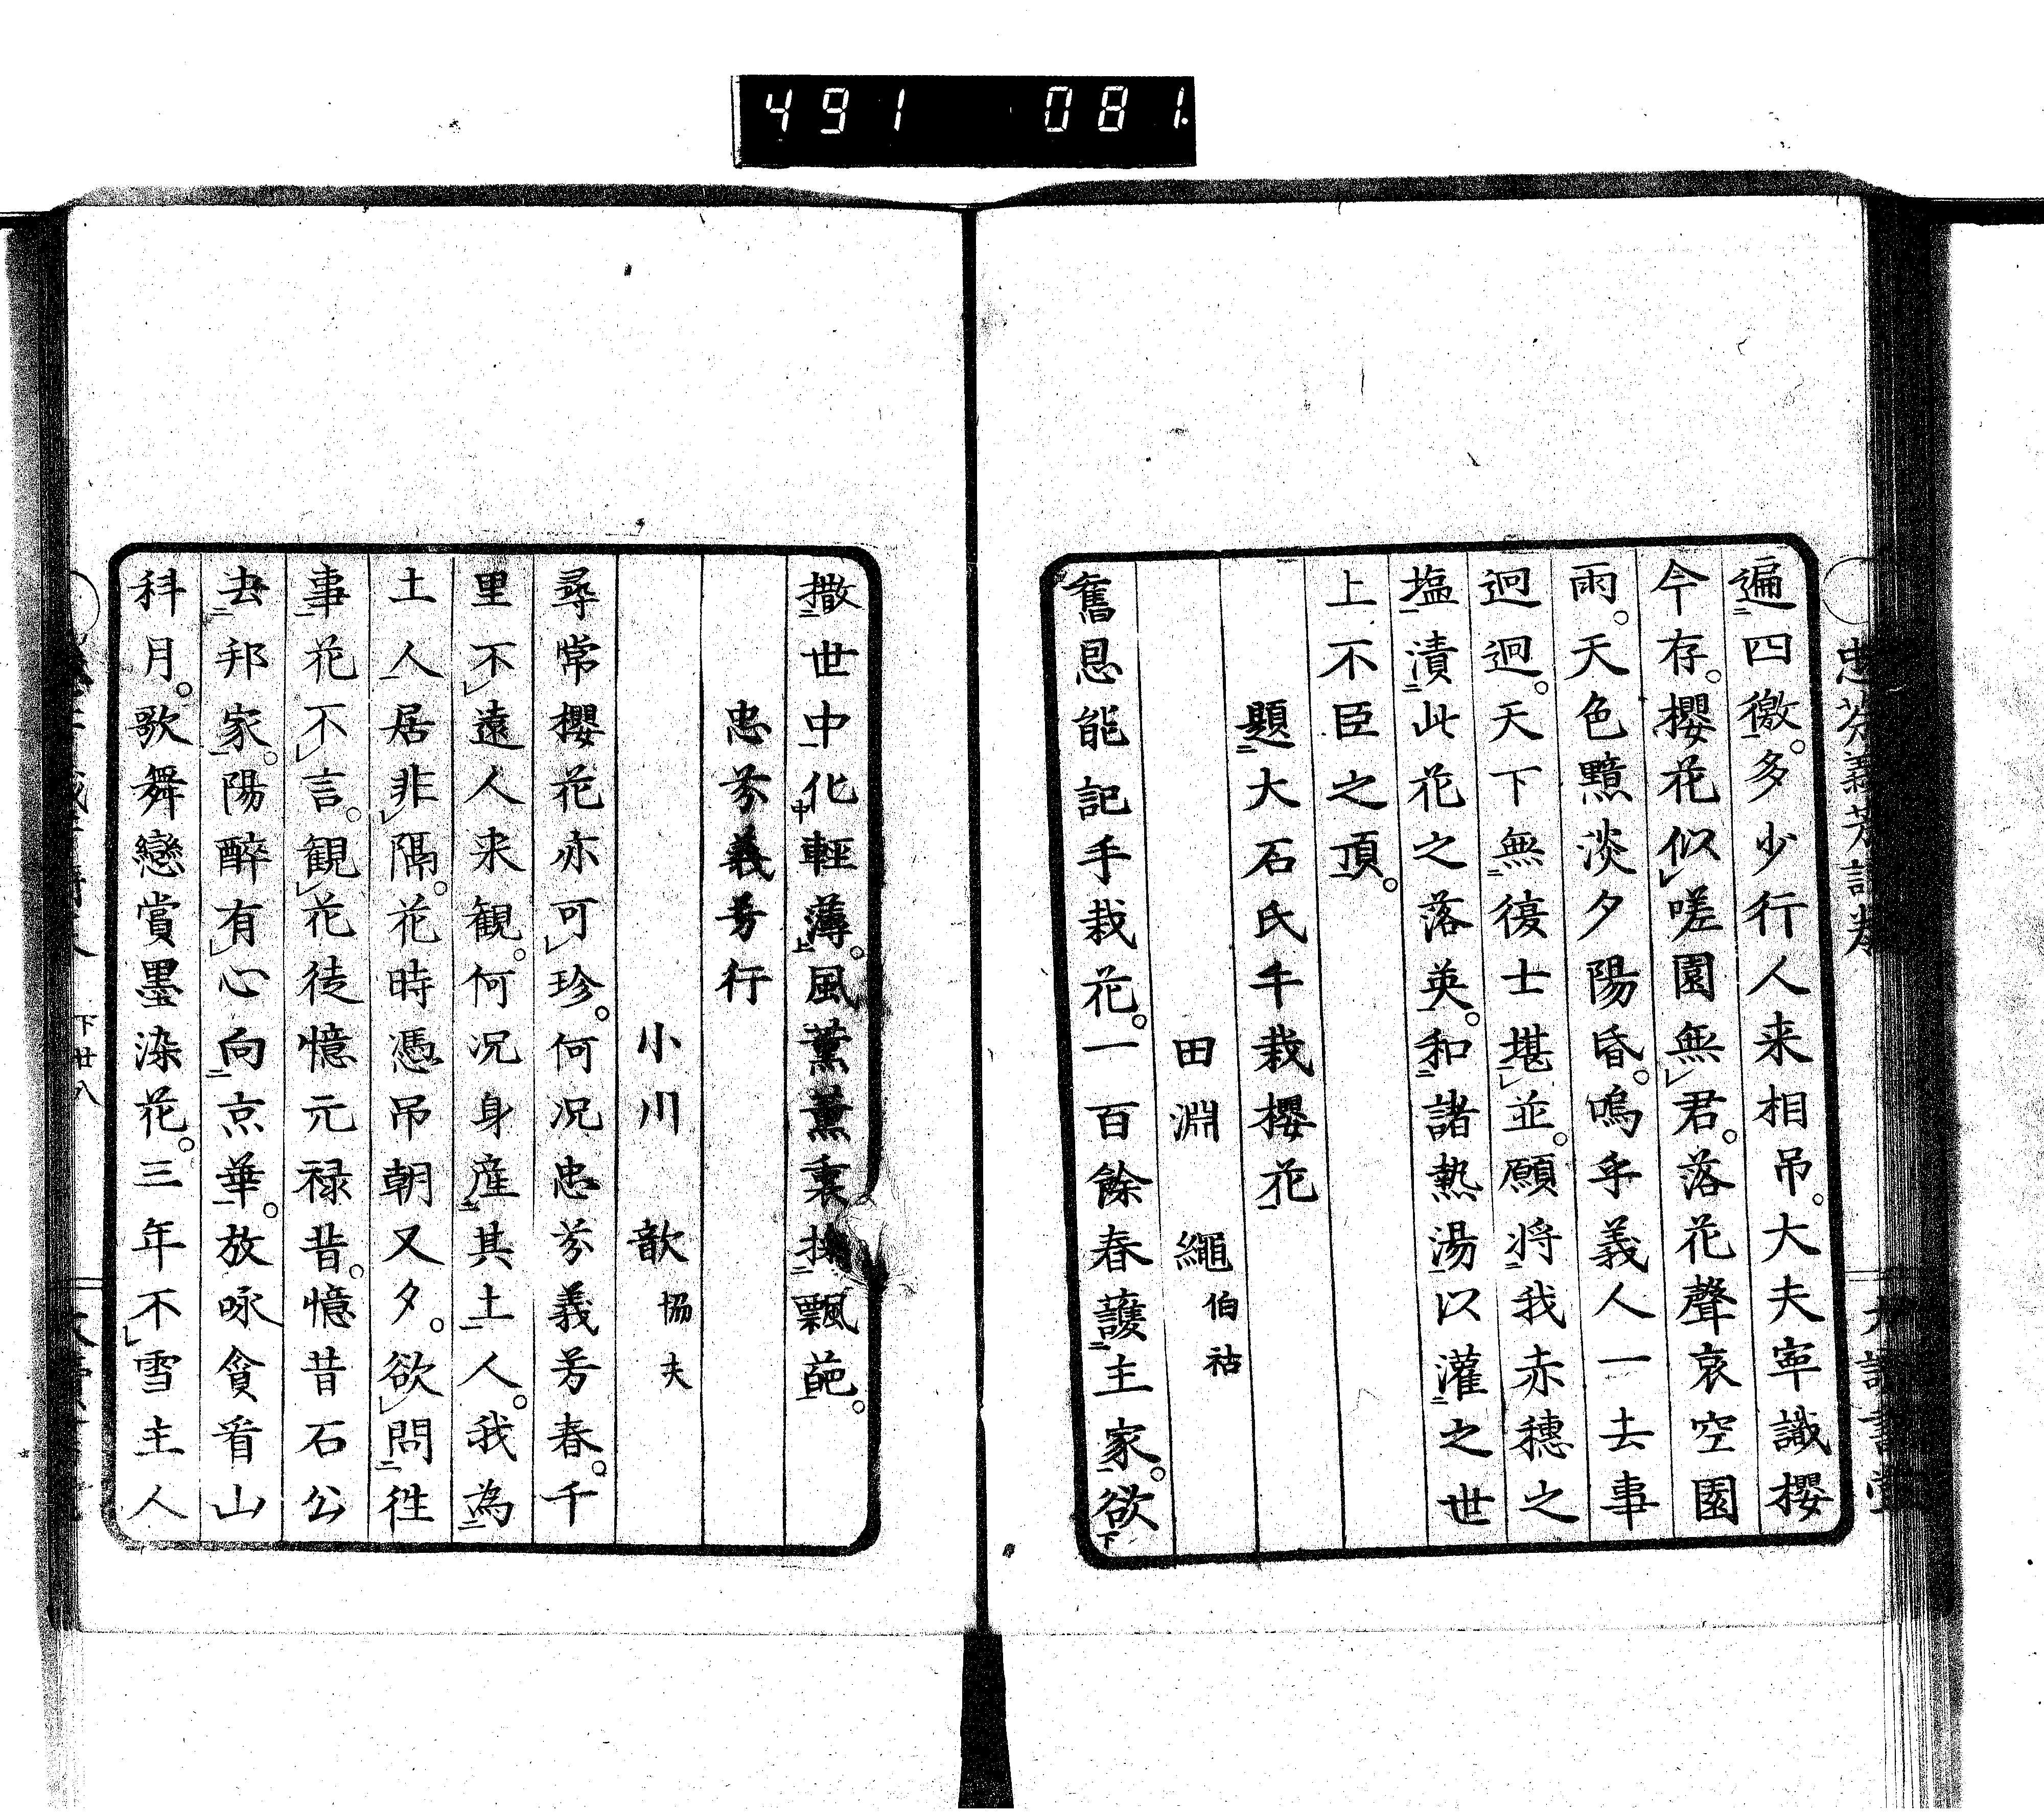 491 081
遍四徼。多少行人来相吊。大夫寧識櫻
今存。櫻花似嗟園無君。落花聲哀空園
雨。天色黯淡夕陽昏。嗚乎義人一去事
迥迥。天下無復士堪並。願將我赤穗之
塩漬此花之落英。和諸熱湯以灌之世
上不臣之頂。
題大石氏手栽櫻花
田淵 繩 伯祜
舊恩能記手栽花。一百餘春護主家。欲
撒世中化輕薄。風薫薫裏 飄葩。
忠芬義芳行
小川 歆 協夫
尋常櫻花亦可珍。何況忠芬義芳春。千
里不遠人来観。何況身産其土人。我為
土人居非隔。花時憑吊朝又夕。欲問往
事花不言。観花徒憶元禄昔。憶昔石公
去邦家。陽醉有心向京華。放咏貪看山
科月。歌舞戀賞墨染花。三年不雪主人
下廿八